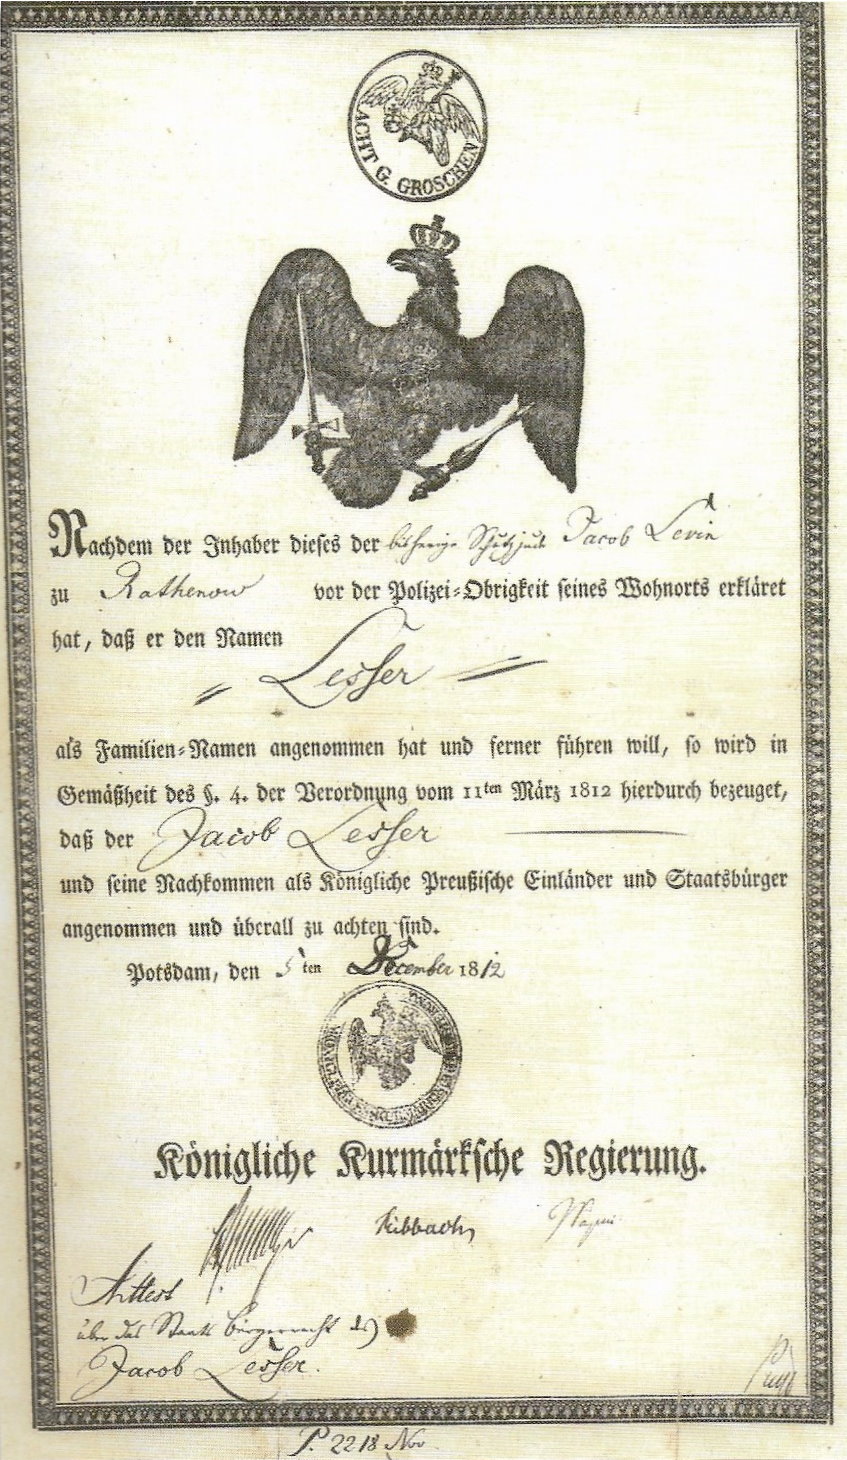 ACHT G. GROSCHEN
Nachdem der Inhaber dieses der bisherige Schutzjude Jacob Levin
zu Rathenow vor der Polizei-Obrigkeit seines Wohnorts erkläret
hat, daß er den Namen
Lesser
als Familien-Namen angenommen hat und ferner führen will, so wird in
Gemäßheit des §. 4. der Verordnung vom 11ten März 1812 hierdurch bezeuget,
daß der Jacob Lesser
und seine Nachkommen als Königliche Preußische Einländer und Staatsbürger
angenommen und überall zu achten sind.
Potsdam, den 5ten December 1812
Königliche Kurmärksche Regierung.
Attest
über das Staats bürgerrecht des
Jacob Lesser.
P. 2218 Nov